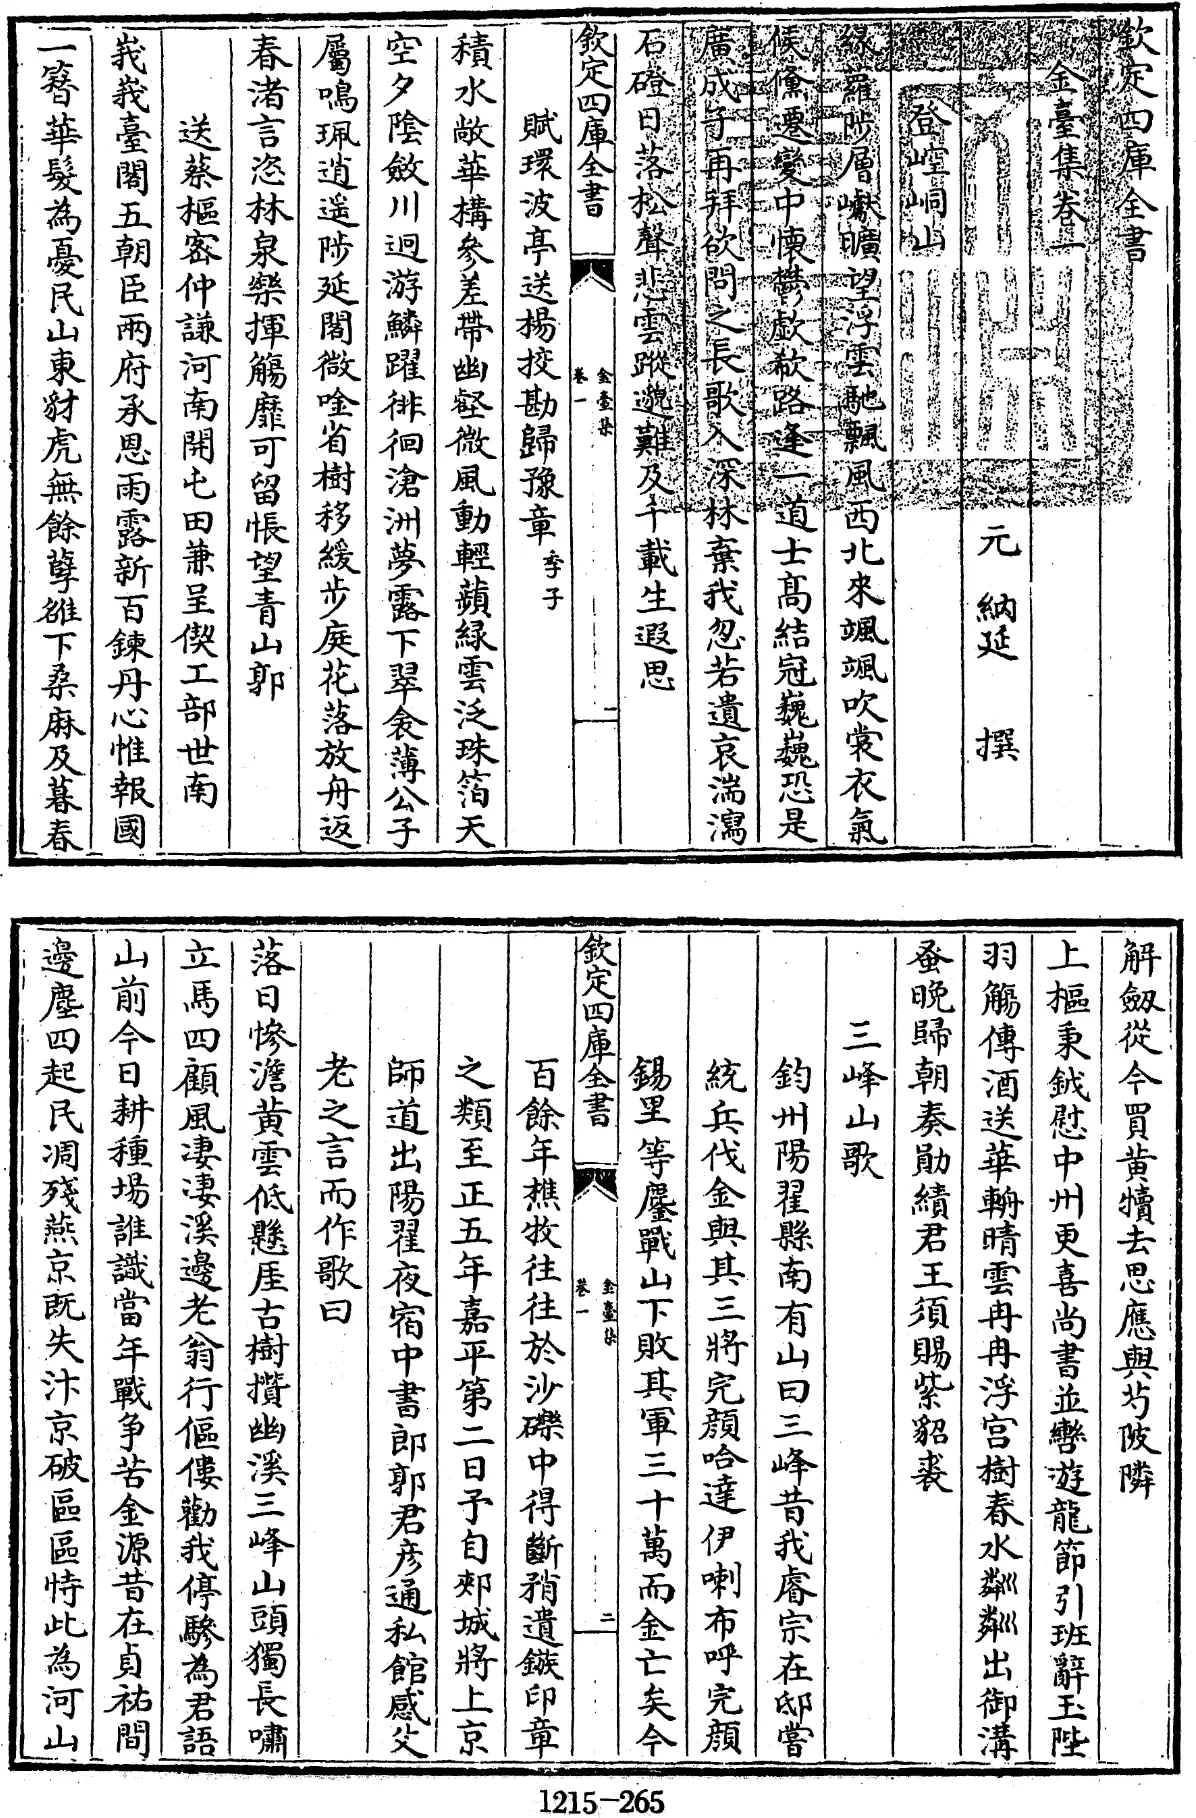 欽定四庫全書
金臺集卷一
元　納延　撰
登崆峒山
緑蘿陟層巘曠望浮雲馳飄風西北來颯颯吹裳衣氣
候儵遷變中懷鬱歔欷路逢一道士髙結冠巍巍恐是
廣成子再拜欲問之長歌入深林棄我忽若遺哀湍瀉
石磴日落松聲悲雲蹤邈難及千載生遐思
欽定四庫全書
金臺集
卷一
一
賦環波亭送揚挍勘歸豫章 季子
積水敞華構參差帶幽壑微風動輕蘋緑雲泛珠箔天
空夕陰斂川迥游鱗躍徘徊滄洲夢露下翠衾薄公子
屬鳴珮逍遥陟延閣微唫省樹移緩步庭花落放舟返
春渚言恣林泉樂揮觴靡可留悵望青山郭
送蔡樞宻仲謙河南開屯田兼呈偰工部世南
峩峩臺閣五朝臣兩府承恩雨露新百鍊丹心惟報國
一簪華髮為憂民山東豺虎無餘孽雒下桑麻及暮春
解劔從今買黄犢去思應與芍陂隣
上樞秉鉞慰中州更喜尚書並轡游龍節引班辭玉陛
羽觴傳酒送華輈晴雲冉冉浮宫樹春水粼粼出御溝
蚤晚歸朝奏勛績君王須賜紫貂裘
三峰山歌
鈞州陽翟縣南有山曰三峰昔我睿宗在邸嘗
統兵伐金與其三將完顔哈達伊喇布呼完顔
錫里等鏖戰山下敗其軍三十萬而金亡矣今
欽定四庫全書
金臺集
卷一
二
百餘年樵牧往往於沙礫中得斷矟遺鏃印章
之類至正五年嘉平第二日予自郟城將上京
師道出陽翟夜宿中書郎郭君彦通私館感父
老之言而作歌曰
落日惨澹黄雲低懸厓古樹攢幽溪三峰山頭獨長嘯
立馬四顧風凄凄溪邊老翁行傴僂勸我停驂為君語
山前今日耕種塲誰識當年戰爭苦金源昔在貞祐間
邊塵四起民凋殘燕京既失汴京破區區恃此為河山
1215-265